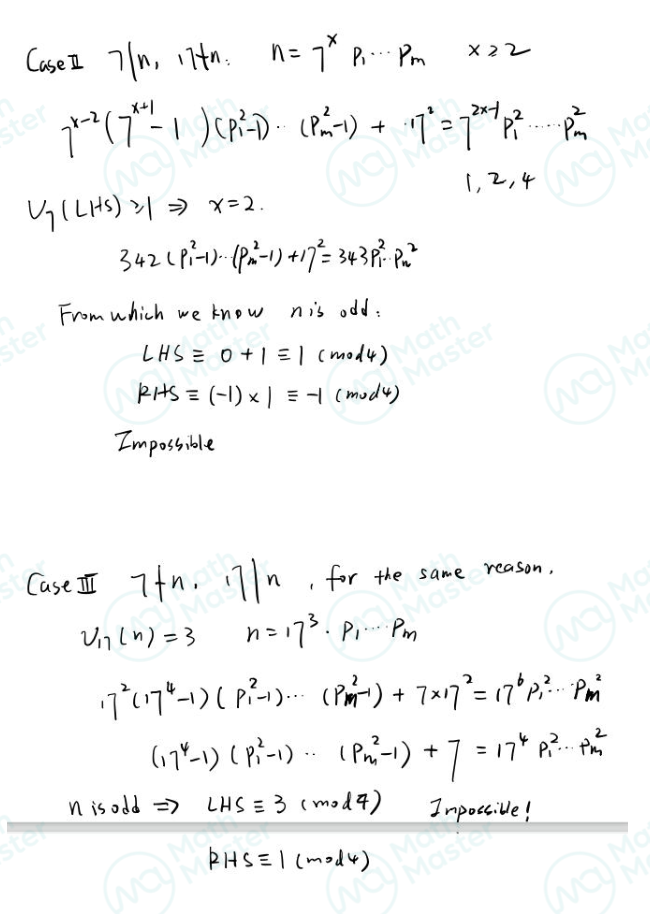 Case II 7|n, 17∤n. n = 7^x P₁ ⋯ Pm x ≥ 2
7^(x-2) (7^(x+1) - 1)(P₁²-1) ⋯ (Pm²-1) + 17² = 7^(2x-1) P₁² ⋯⋯ Pm²
1, 2, 4
V₇(LHS) ≥ 1 ⇒ x = 2.
342 (P₁²-1) ⋯ (Pm²-1) + 17² = 343 P₁² ⋯ Pm²
From which we know n is odd:
LHS ≡ 0 + 1 ≡ 1 (mod 4)
RHS ≡ (-1) × 1 ≡ -1 (mod 4)
Impossible
Case III 7∤n, 17|n, for the same reason.
V₁₇(n) = 3 n = 17³ · P₁ ⋯ Pm
17² (17⁴-1)(P₁²-1) ⋯ (Pm²-1) + 7×17² = 17⁶ P₁² ⋯ Pm²
(17⁴-1)(P₁²-1) ⋯ (Pm²-1) + 7 = 17⁴ P₁² ⋯ Pm²
n is odd ⇒ LHS ≡ 3 (mod 4) Impossible!
RHS ≡ 1 (mod 4)